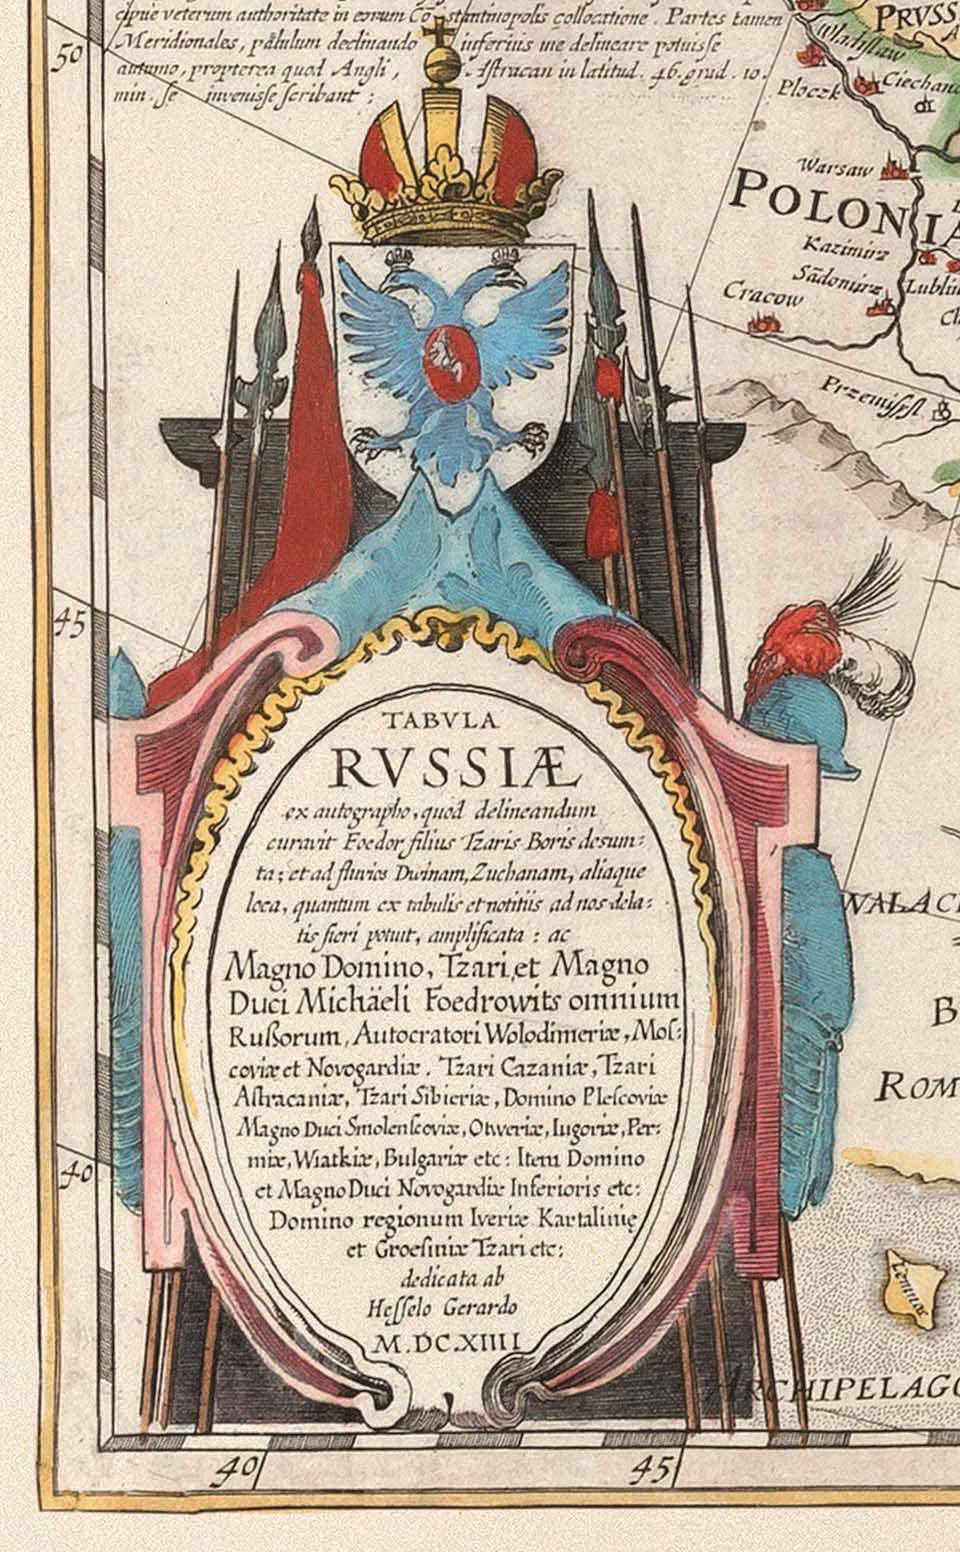 cipue veterum authoritate in eorum Cõstantinopolis collocatione. Partes tamen
Meridionales, pålulum declinando inferius me delineare potuisse
autumo, propterea quod Angli, Astracan in latitud. 46. grad. 10.
min. se invenisse scribant :
50
45
40
40
45
PRVSS
Wladislaw
Ploczk
Ciechano
Warsaw
POLONIA
Kazimirz
Sãdomirz
Lublin
Cracow
Przemislsl
WALACH
B
ROM
Lemnos
ARCHIPELAGO
TABVLA
RVSSIÆ
ex autographo, quod delineandum
curavit Foedor filius Tzaris Boris desum:
ta; et ad fluvios Dwinam, Zuchanam, aliaque
loca, quantum ex tabulis et notitiis ad nos dela:
tis fieri potuit, amplificata : ac
Magno Domino, Tzari, et Magno
Duci Michäeli Foedrowits omnium
Rußorum, Autocratori Wolodimeriæ, Mos:
coviæ et Novogardiæ. Tzari Cazaniæ, Tzari
Astracaniæ, Tzari Sibieriæ, Domino Plescoviæ
Magno Duci Smolenscoviæ, Otweriæ, Iugoriæ, Per:
miæ, Wiatkiæ, Bulgariæ etc: Item Domino
et Magno Duci Novogardiæ Inferioris etc:
Domino regionum Iveriæ Kartalinię
et Groesiniæ Tzari etc;
dedicata ab
Hesselo Gerardo
M.DC.XIIII